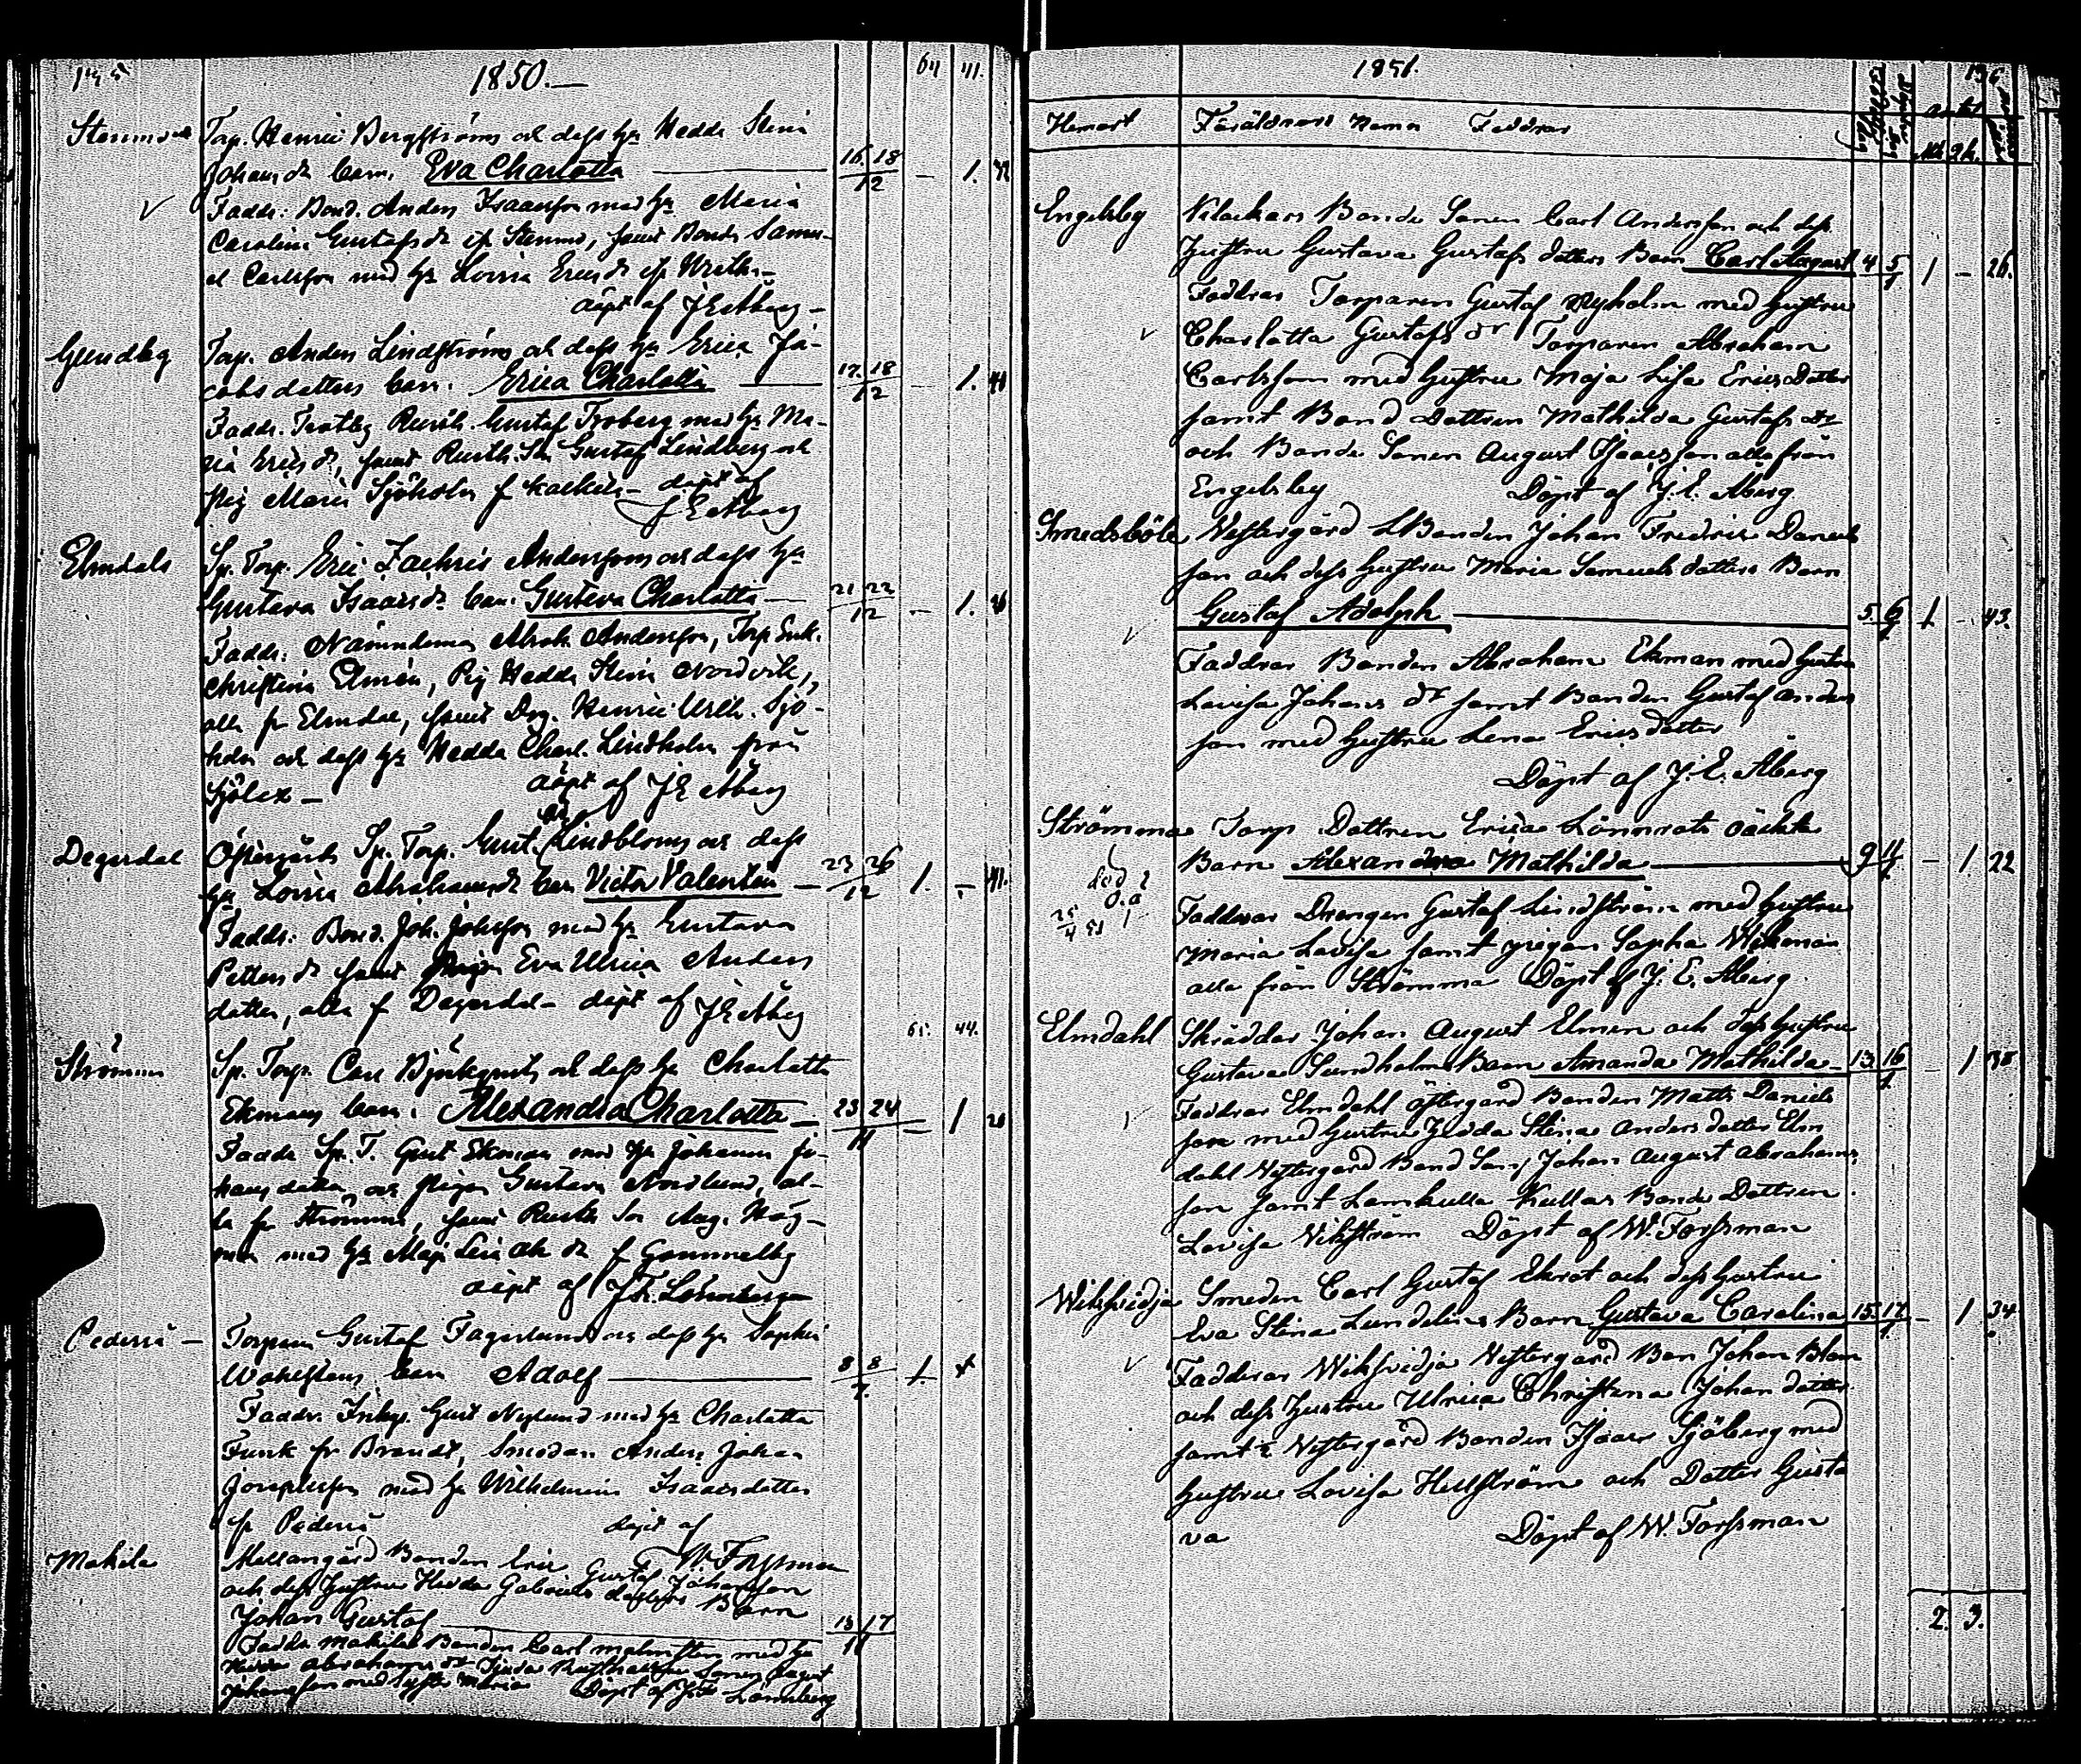 1850.
64 41.
Torp. Henric Bergströms och dess h. Hedda Stina
Johansd. barn. Eva Charlotta 16 18 / 12 – 1.
Fadd: Bond. Anders Isaacsson med h. Maria
Carolina Gustafsd. Bonds. Samu-
el Carlsson med h. Lovisa Ericsd.
döpt af J E Åberg
Torp. Anders Lindströms och dess h. Erica Ja-
cobs dotters barn. Erica Charlotta 17. 18 / 12 – 1.
Fadd. Gustaf Froberg med h. Ma-
ria Ericsd, samt Rusth. Son Gustaf Lindberg och
pig Maria Sjöholm döpt af
J E Åberg
Elmdals
Sp. Torp. Eric Zachris Anderssons och dess h.
Gustava Isaacsd. barn. Gustava Charlotta 21 22 / 12 – 1.
Fadd: Nämndeman Abrah. Andersson, Torp. Enk.
Christina Elmén, Pig Hedda Stina Nordvik,
alla fr Elmdal, samt Drg. Henric Wilh. Sjö-
holm och dess h. Hedda Charl. Lindholm från
döpt af J E Åberg
Degerdal
Östergårds Sp. Torp. Gust. Lindbloms och dess
h. Lovisa Abrahamsd. barn Victor Valentin 23 26 / 12 1. – 41.
Fadd: Bond. Joh. Johnsson med h. Gustava
Petters d. samt Pigan Eva Ulrica Anders
dotter, alla f Degerdal – döpt af J E Åberg
65. 44.
Strömma
Sp. Torp. Carl Björkqvists och dess h. Charlotta
Ekmans barn. Alexandra Charlotta 23 24 / 11 – 1 28
Fadd Sp. T. Gust Ekman med h. Johanna Jo-
hans dotter, och pigan Gustava Nordlund, al-
la fr Strömma, samt Rusth. Son Aug. Hög-
man med h. Maja Lisa f Gammelby
döpt af J. F. Lönnberg
Pederså –
Torparen Gustaf Fagerlunds och dess h. Sophia
Wahlstens barn Adolf 8 8 / 7. 1.
Faddr. Gust Nylund med h. Charlotta
Funk fr Brandt, Smeden Anders Johan
Josephsson med h. Wilhelmina Isaacsdotter
fr Pederså döpt af
W. Forssman
Makila
Mellangård Bonden Eric Gustaf Johansson
och dess Hustru Hedda Gabriels dotters Barn
Johan Gustaf 13 17 / 11
Fadda Makila Bonden Carl Malmsten med h.
Hedda Abrahams dr Rusthållar Sonen August
Johansson med Maria Döpt af J.F. Lönnberg
1851.
Hemort Föräldrars namn Faddrar
Engelsby
Bonde Sonen Carl Andersson och dess
Hustru Gustava Gustafs dotters Barn Carl August 4 5 / 1 1 – 26.
Faddrar Torparen Gustaf Nyholm med hustru
Charlotta Gustafs dr Torparen Abraham
Carlsson med hustru Maja Lisa Erics Dotter
samt Bond Dottren Mathilda Gustafs dr
och Bonde Sonen August Isacsson alla från
Engelsby Döpt af J. E. Åberg
Smedsböle
Westergård Bonden Johan Fredric Daniels
son och dess hustru Maria Samuels dotters Barn
Gustaf Adolph 5. 6 / 1 1 – 43.
Faddrar Bonden Abraham Ekman med hustru
Lovisa Johans dr samt Bonden Gustaf Anders
son med hustru Lena Erics dotter
Döpt af J. E. Åberg
Strömma
Torp Dottren Erica Lönnrots oächta
Barn Alexandra Mathilda 9 11 / 1 – 1 22
död
25 / 4 51
Faddrar Drengen Gustaf Lindström med hustru
Maria Lovisa samt pigan Sophia Wikman
alla från Strömma Döpt af J. E. Åberg.
Elmdahl
Skräddar Johan August Elmen och dess hustru
Gustava Sundholms Barn Amanda Mathilda 13. 16 / 1 – 1 38
Faddrar Elmdahl östergård Bonden Matts Daniels
son med hustru Hedda Stina Anders dotter Elm
dahl Westergård Bond Son Johan August Abrahams
son samt Lamkulla Kullas Bonde Dottren
Lovisa Wikström Döpt af W. Forssman
Wiksvidja
Smeden Carl Gustaf Ekrot och dess hustru
Eva Stina Lundelins Barn Gustava Carolina 15. 17 / 1. – 1 34
Faddrar Wiksvidja Westergård Bon Johan Blom
och dess hustru Ulrica Christina Johans dotter
samt Westergård Bonden Isaac Sjöberg med
hustru Lovisa Hellström och Dotter Gusta
va Döpt af W. Forssman
2. 3.